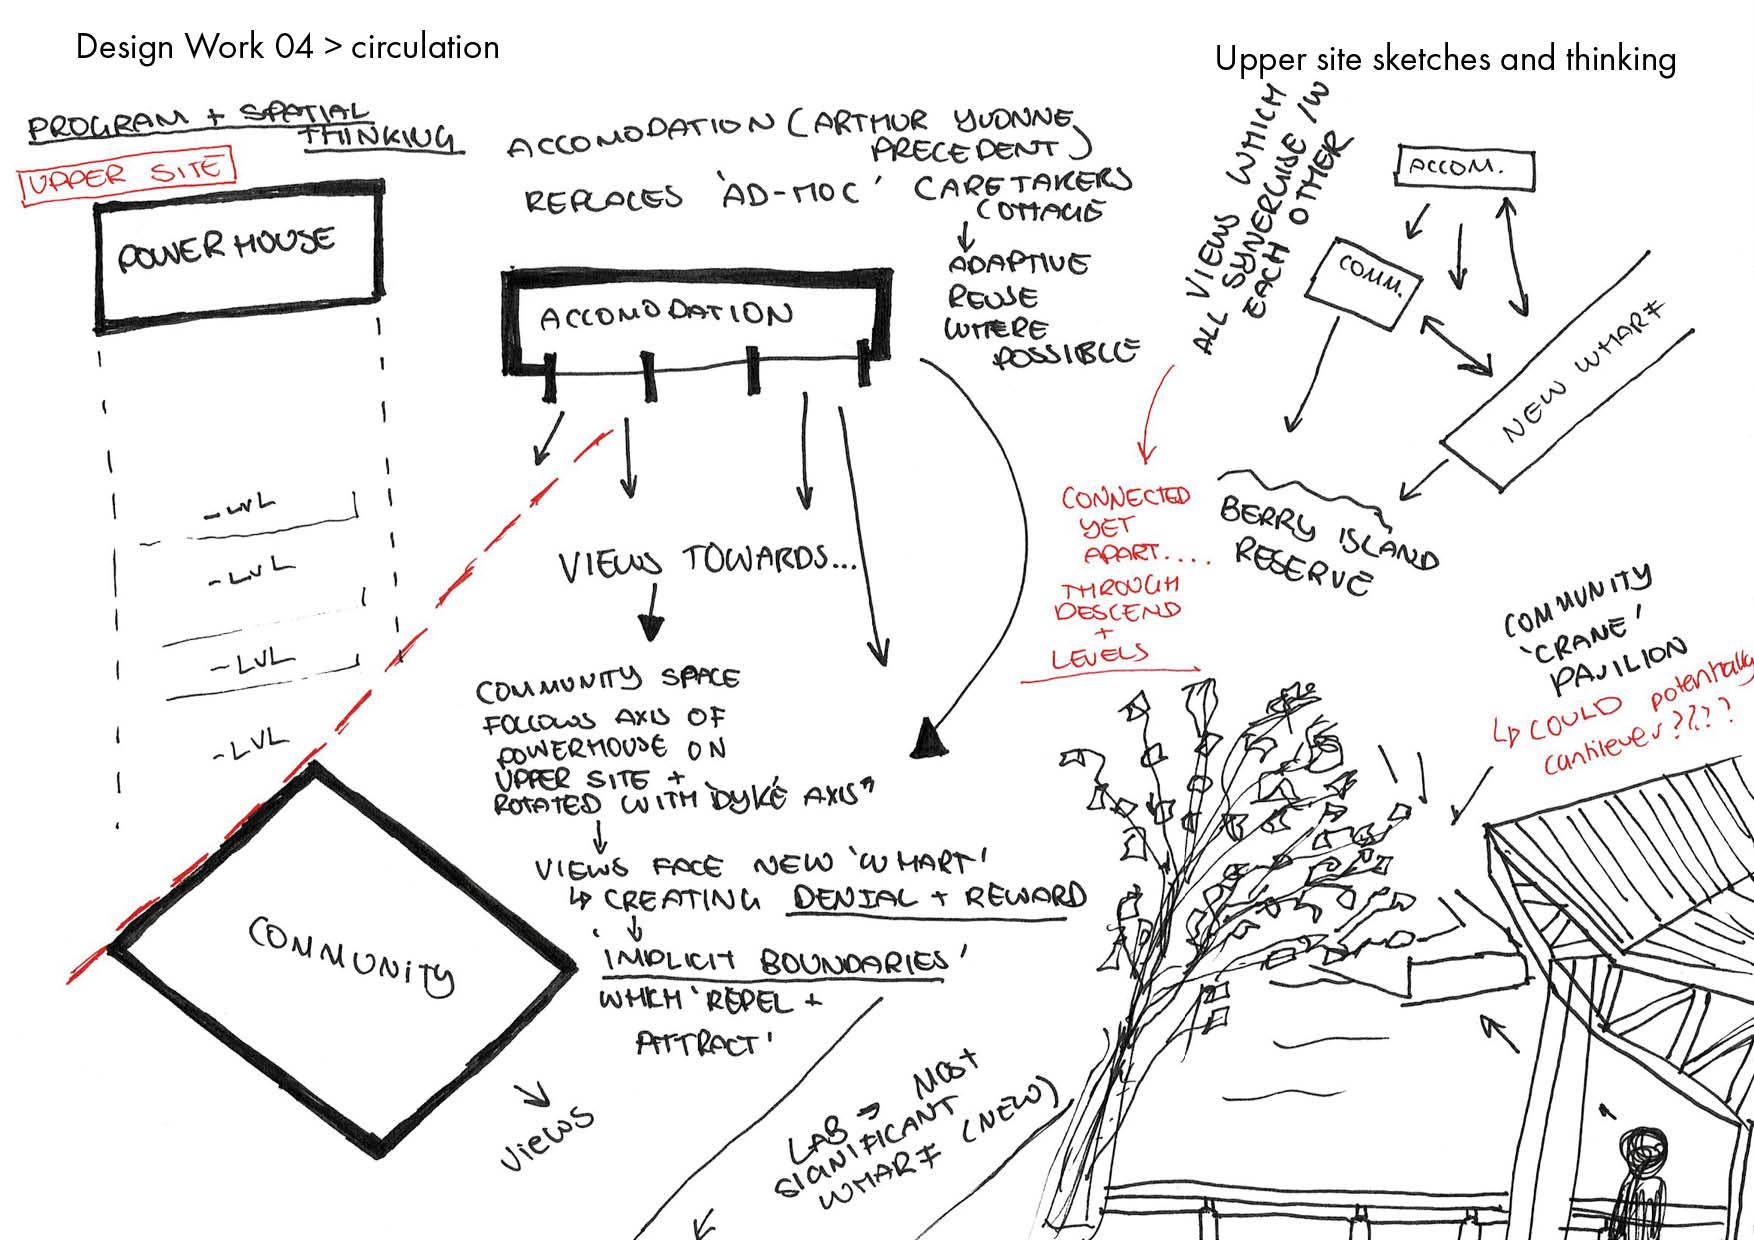 Design Work 04 > circulation
Upper site sketches and thinking
PROGRAM + SPATIAL
THINKING
UPPER SITE
POWERHOUSE
-LVL
-LVL
-LVL
-LVL
ACCOMODATION (ARTHUR YVONNE
PRECEDENT)
REPLACES 'AD-HOC' CARETAKERS
COTTAGE
ADAPTIVE
REUSE
WHERE
POSSIBLE
ACCOMODATION
VIEWS TOWARDS...
COMMUNITY SPACE
FOLLOWS AXIS OF
POWERHOUSE ON
UPPER SITE +
ROTATED WITH 'DYKE AXIS"
VIEWS FACE NEW 'WHARF'
CREATING DENIAL + REWARD
'IMPLICIT BOUNDARIES'
WHICH 'REPEL +
ATTRACT'
COMMUNITY
VIEWS
LAB → MOST
SIGNIFICANT
WHARF (NEW)
ALL VIEWS WHICH
SYNERGISE /W
EACH OTHER
CONNECTED
YET
APART....
THROUGH
DESCEND
+
LEVELS
ACCOM.
COMM.
NEW WHARF
BERRY ISLAND
RESERVE
COMMUNITY
'CRANE'
PAVILION
COULD potentially
cantilever????